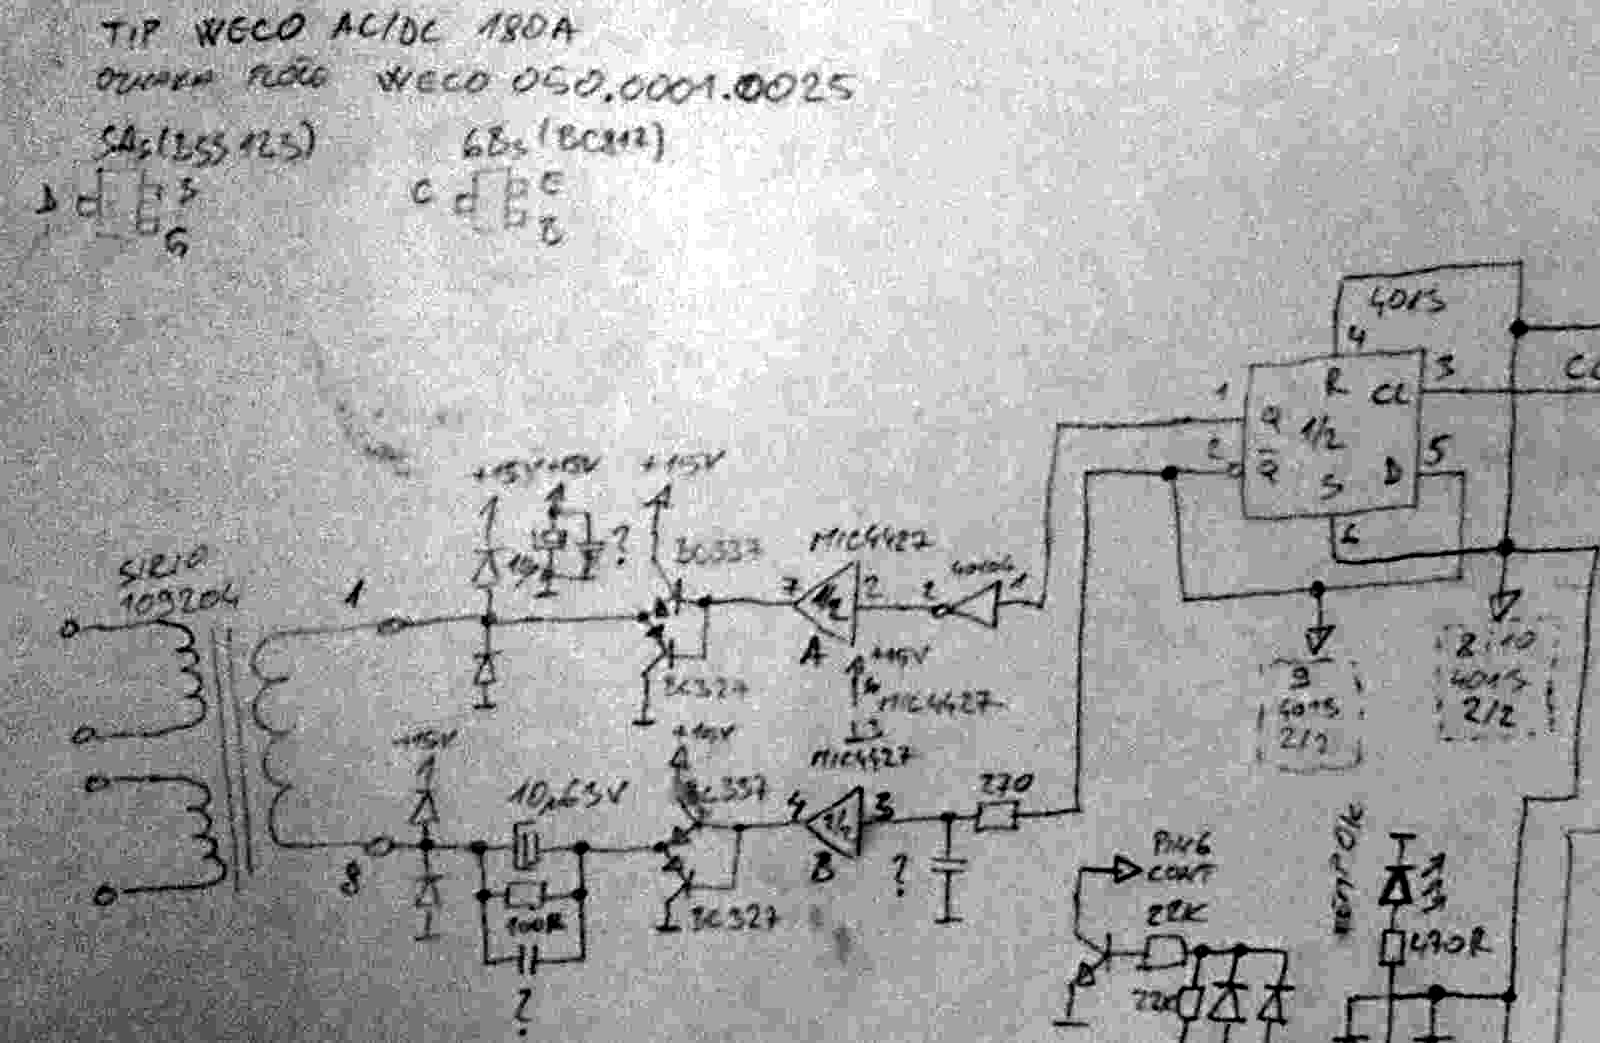 TIP WECO AC/DC 180A
WECO 050.0001.0025
SAs (BSS 123)
6Bs (BC817)
D
S
G
C
E
B
4013
4
1
3
R
CL
Q
1/2
2
5
Q
S
D
6
+15V +15V +15V
?
BC337
MIC4427
7
1/2
2
2
1
A
SIRIO
109204
1
BC327
+15V
MIC4427
+15V
+15V
MIC4427
10µ63V
BC337
4
1/2
3
270
B
?
8
100R
BC327
?
9
4013
2/2
8 i 10
4013
2/2
CONT
22K
22K
TEMP OK
470R